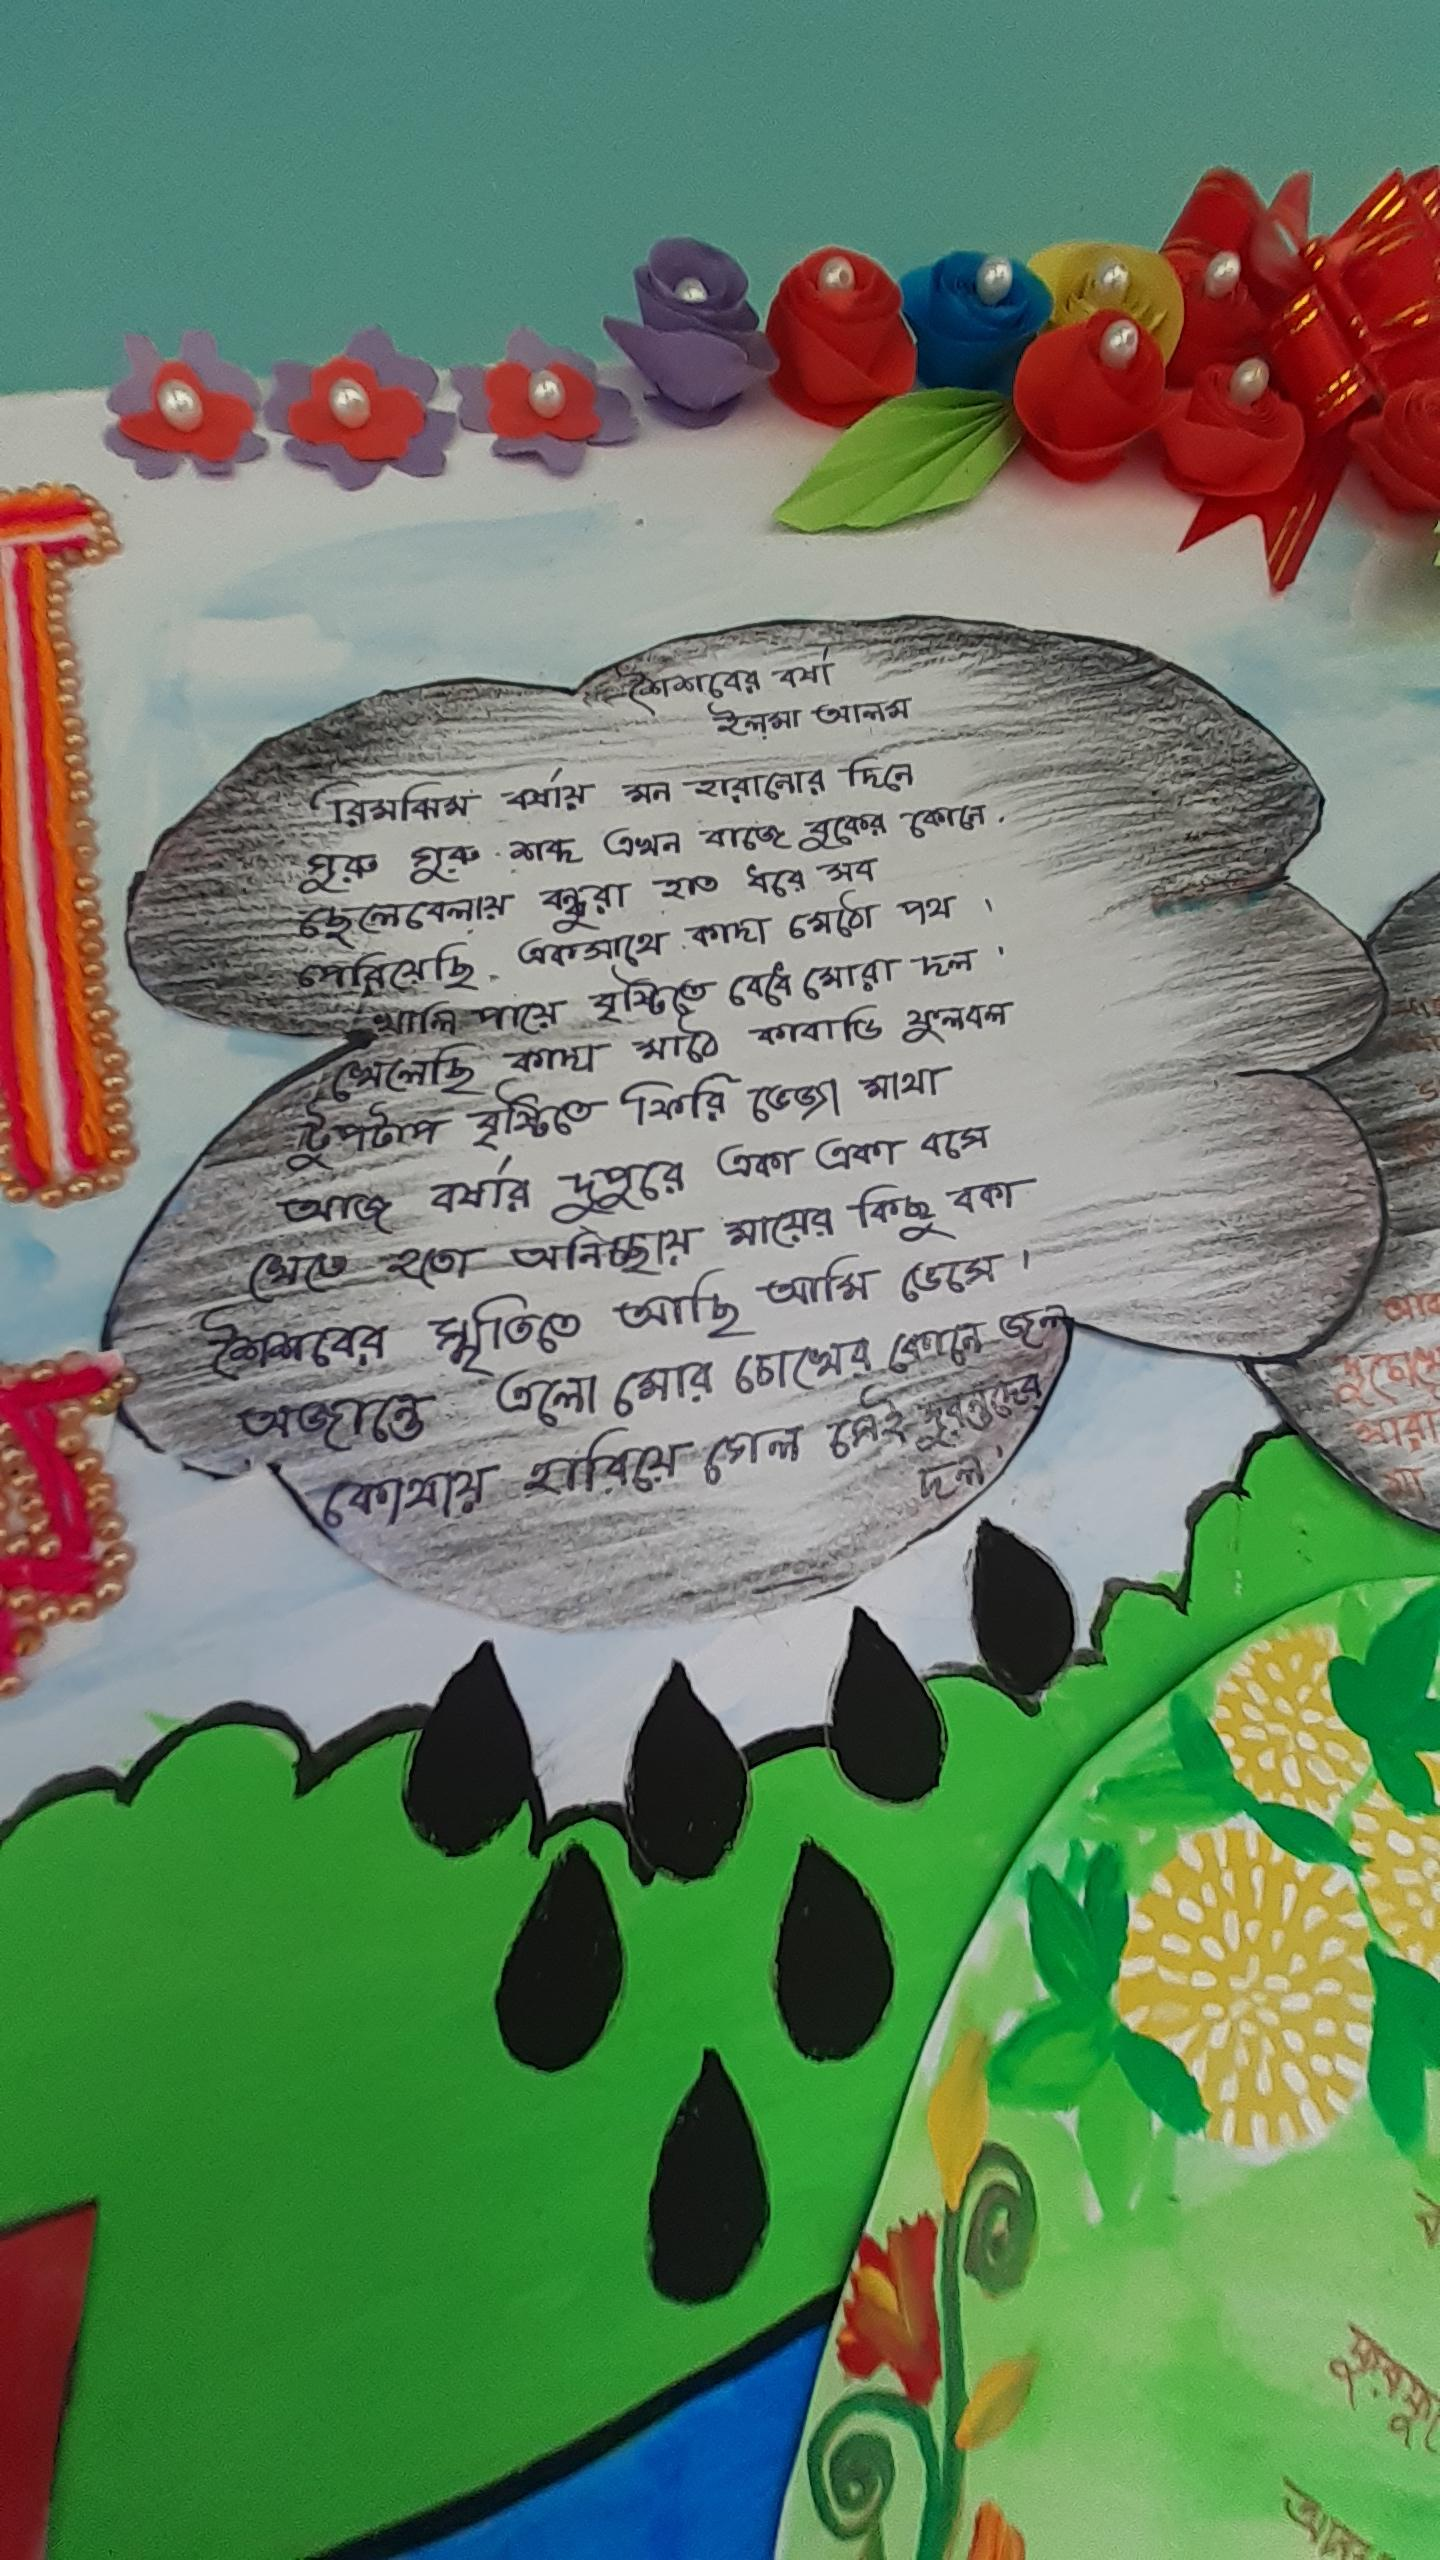 শৈশবের বর্ষা
ইলমা আলম
রিমঝিম বর্ষায় মন হারানোর দিনে
গুরু গুরু শব্দ এখন বাজে বুকের কোনে.
ছেলেবেলায় বন্ধুরা হাত ধরে সব
পেরিয়েছি একসাথে কাদা মেঠো পথ ।
খালি পায়ে বৃষ্টিতে বেধে মোরা দল ।
খেলেছি কাদা মাঠে কাবাডি ফুলবল
টুপটাপ বৃষ্টিতে ফিরি ভেজা মাথা
আজ বর্ষার দুপুরে একা একা বসে
খেতে হতো অনিচ্ছায় মায়ের কিছু বকা
শৈশবের স্মৃতিতে আছি আমি ভেসে ।
অজান্তে এলো মোর চোখের কোনে জল
কোথায় হারিয়ে গেল সেই দুরন্তদের
দল।